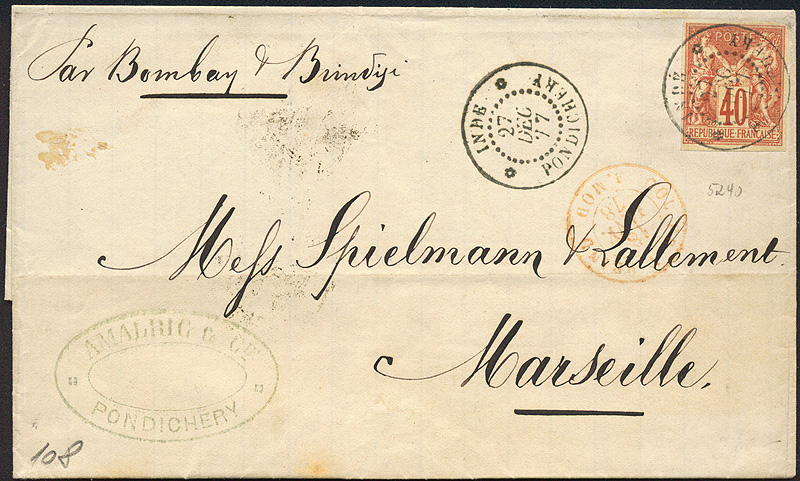 Par Bombay & Brindisi
INDE
PONDICHÉRY
27
DEC
77
POSTE
40
REPUBLIQUE FRANÇAISE
INDE
5240
Mess Spielmann & Lallement.
Marseille.
AMALRIC & CIE
PONDICHERY
108